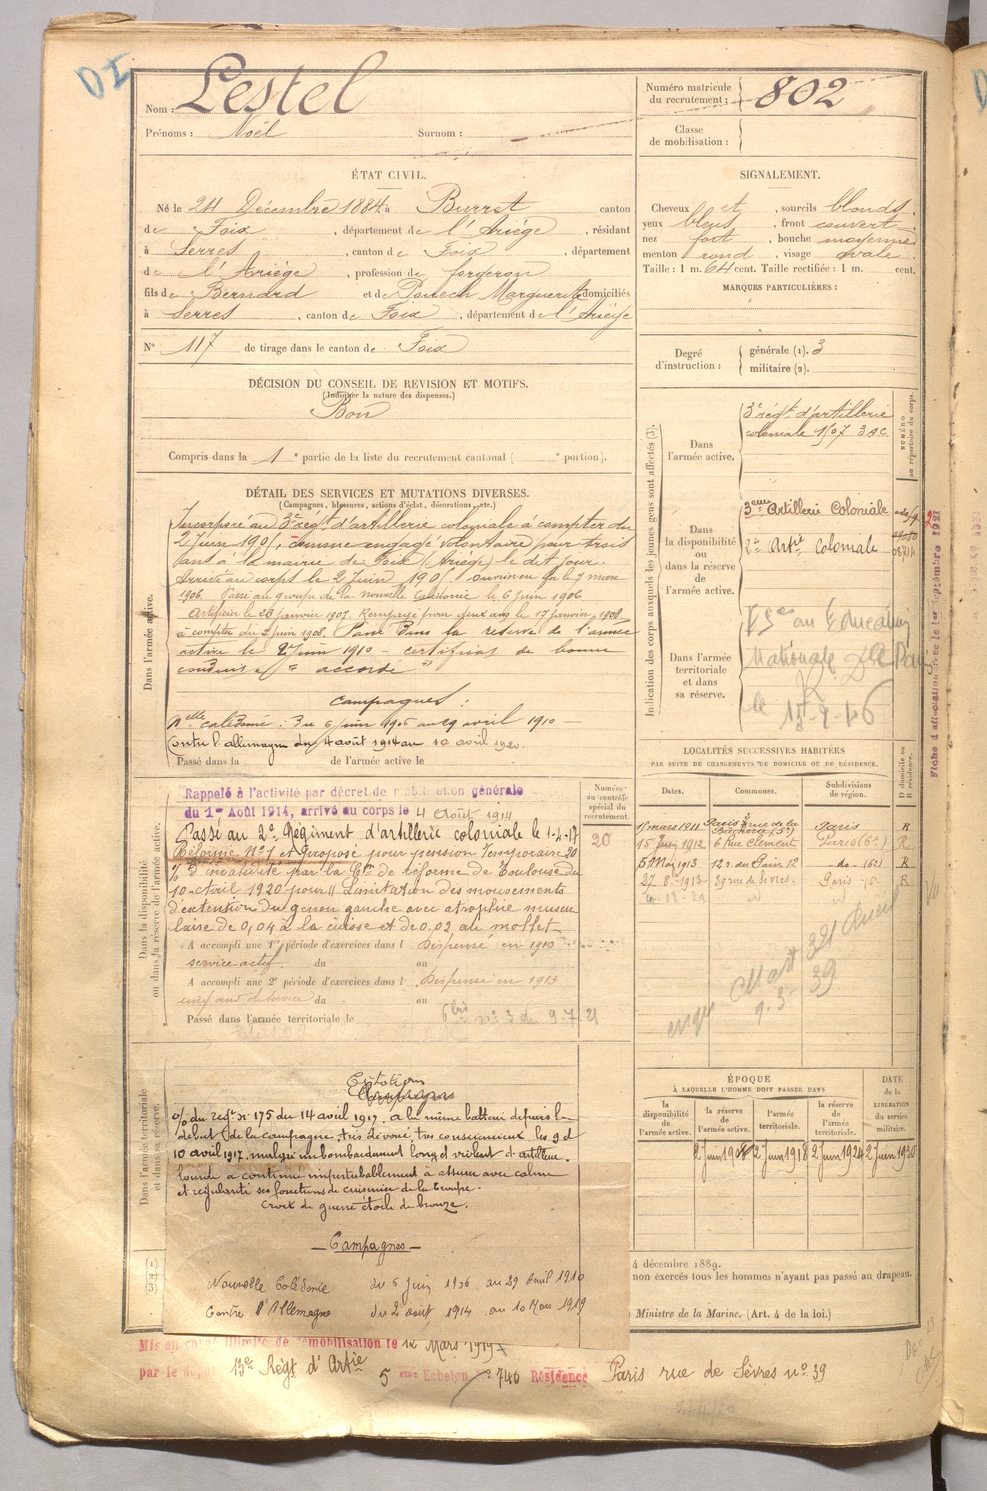 DI
Nom : Lestel
Prénoms : Noël Surnom :
Numéro matricule du recrutement : 802
Classe de mobilisation :
ÉTAT CIVIL.
Né le 24 Décembre 1884 à Burret canton
de Foix, département de l'Ariége, résidant
à Serres, canton de Foix, département
de l'Ariége, profession de forgeron
fils de Bernard et de Ponech Marguerite domiciliés
à Serres, canton de Foix, département de l'Ariége
N° 117 de tirage dans le canton de Foix
SIGNALEMENT.
Cheveux et, sourcils blonds.
yeux bleus, front couvert
nez fort, bouche moyenne
menton rond, visage ovale.
Taille : 1 m. 64 cent. Taille rectifiée : 1 m. cent.
MARQUES PARTICULIÈRES :
Degré d'instruction : générale (1). 3
militaire (2).
DÉCISION DU CONSEIL DE REVISION ET MOTIFS.
(Indiquer la nature des dispenses.)
Bon
Compris dans la 1e partie de la liste du recrutement cantonal ( e portion).
DÉTAIL DES SERVICES ET MUTATIONS DIVERSES.
(Campagnes, blessures, actions d'éclat, décorations, etc.)
Dans l'armée active.
Incorporé au 3e régt d'artillerie coloniale à compter du
2 Juin 190, comme engagé volontaire pour trois
ans à la mairie de Foix (Ariége) le dit jour.
Arrivé au corps le 2 Juin 190
1906. Passé au groupe de la nouvelle Calédonie le 6 juin 1906
Artificier le 23 janvier 1907. Rengagé pour deux ans le 17 janvier 1908
à compter du 2 juin 1908. Passé dans la réserve de l'armée
active le 2 Juin 1910 - certificat de bonne
conduite "accordé"
Campagnes :
Nelle calédonie : du 6 juin 1906 au 29 avril 1910
Contre l'allemagne du 4 août 1914 au 10 avril 1920.
Passé dans la de l'armée active le
Indication des corps auxquels les jeunes gens sont affectés (3).
NUMÉRO au répertoire du corps.
Dans l'armée active.
3e régt d'artillerie
coloniale 1/07 3 AC
Dans la disponibilité ou dans la réserve de l'armée active.
3eme Artillerie Coloniale
2e Artie Coloniale
Dans l'armée territoriale et dans sa réserve.
Fiche d'affectation le 1er Septembre 1921
Dans la disponibilité ou dans la réserve de l'armée active.
Rappelé à l'activité par décret de mobilisation générale
du 1er Août 1914, arrivé au corps le 4 Août 1914
Passé au 2e Régiment d'artillerie coloniale le 1-4-17
Réformé N°1 et proposé pour pension Temporaire 20
% d'invalidité par la Con de réforme de Toulouse du
10 avril 1920 pour "Limitation des mouvements
d'extention du genou gauche avec atrophie muscu
laire de 0,04 à la cuisse et de 0.02 au mollet
A accompli une 1re période d'exercices dans l Dispensé en 1910
service actif. du au
A accompli une 2e période d'exercices dans l Dispensé en 1913
du au
Passé dans l'armée territoriale le
Numéro au contrôle spécial du recrutement.
20
LOCALITÉS SUCCESSIVES HABITÉES
PAR SUITE DE CHANGEMENTS DE DOMICILE OU DE RÉSIDENCE.
Dates. Communes. Subdivisions de région. D domicile ou R résidence.
1 mars 1911 Paris 3 rue de la Bucherie (5e) Paris R
15 Juin 1912 6 Rue Clément Paris (6e) R
5 Mai 1913 R
27 8 1913 39 rue de Sèvres Paris R
ÉPOQUE
À LAQUELLE L'HOMME DOIT PASSER DANS
la disponibilité de l'armée active. la réserve de l'armée active. l'armée territoriale. la réserve de l'armée territoriale. DATE de la LIBÉRATION du service militaire.
2 Juin 1908 2 Juin 1918 2 Juin 1924 2 Juin 1930
Dans l'armée territoriale et dans sa réserve.
Citations
O/ du régt n° 175 du 14 avril 1917. a la même batterie depuis le
début de la campagne, très dévoué, très consciencieux les 9 et
10 avril 1917, malgré un bombardement long et violent d'artillerie
lourde a continué imperturbablement à assurer avec calme
et régularité ses fonctions de cuisinier de la troupe.
Croix de guerre étoile de bronze.
Campagnes
Nouvelle Calédonie du 6 juin 1906 au 29 Avril 1910
Contre l'Allemagne du 2 août 1914 au 10 Mars 1919
(1)
(2)
(3)
4 décembre 1889.
non exercés tous les hommes n'ayant pas passé au drapeau.
Ministre de la Marine. (Art. 4 de la loi.)
Mis en congé illimité de démobilisation le 12 Mars 1919
par le dépôt 13e Régt d'Artie 5 ème Echelon n° 746 Résidence Paris rue de Sèvres n° 39